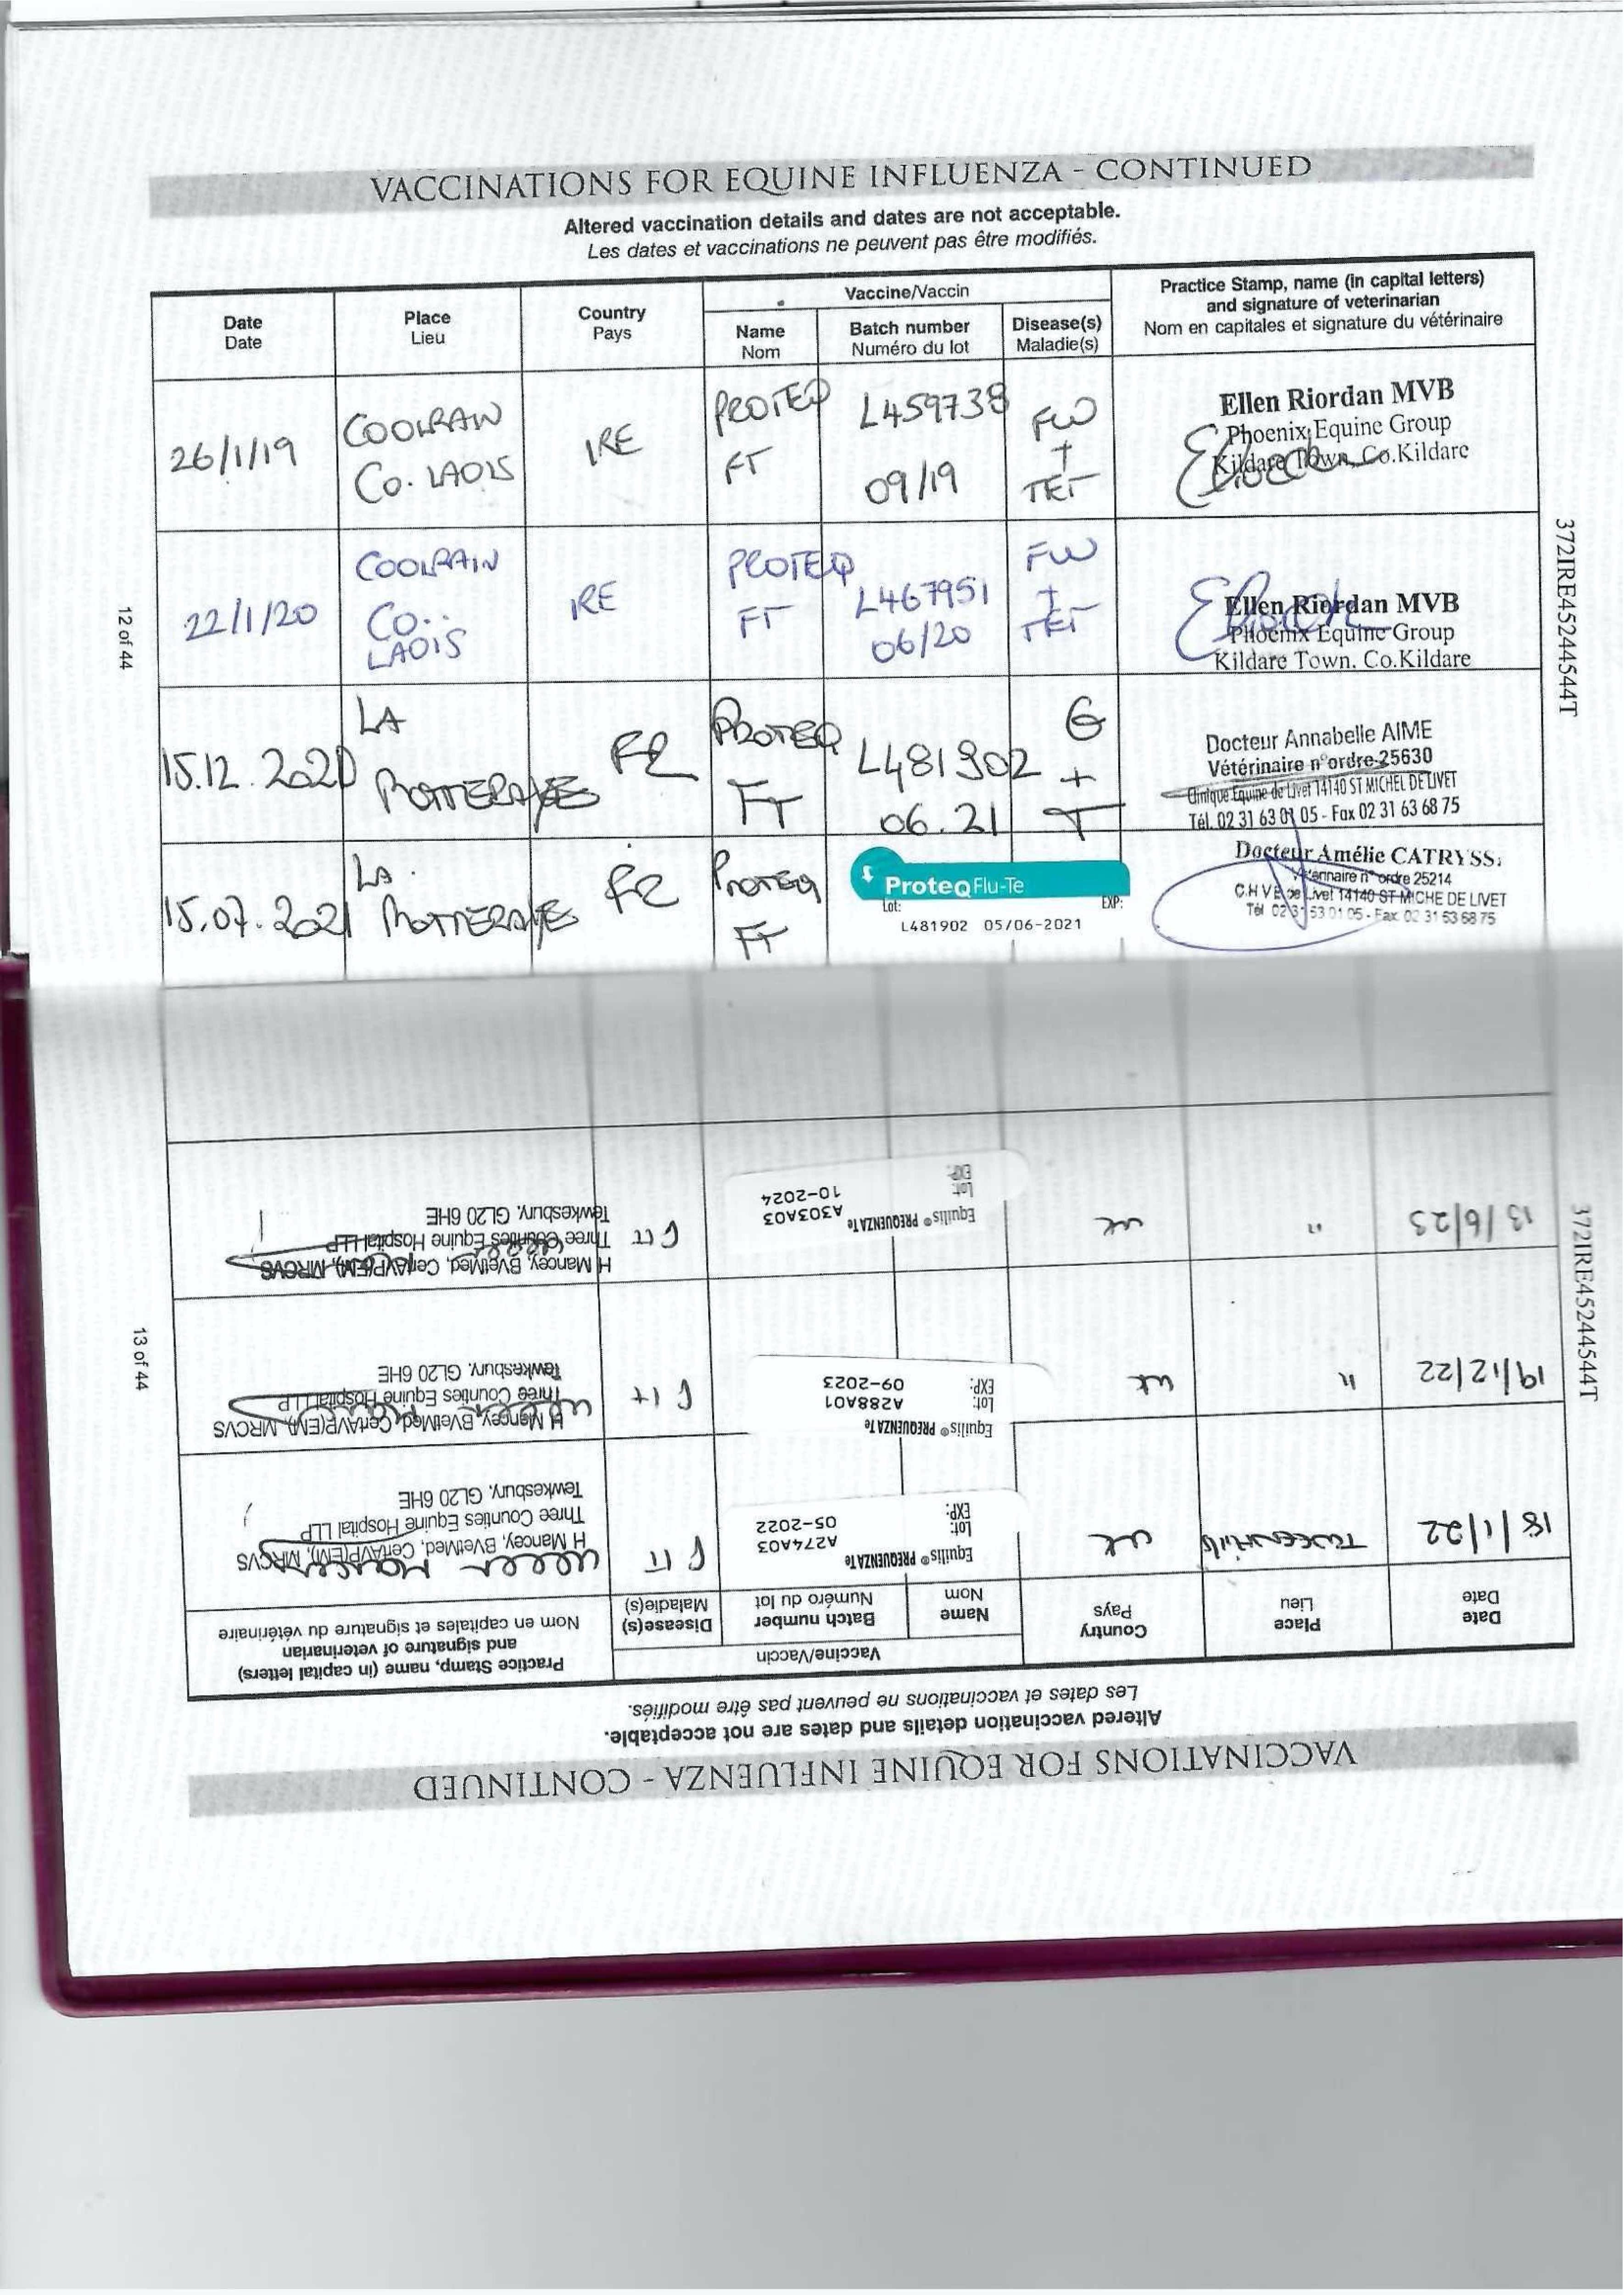 VACCINATIONS FOR EQUINE INFLUENZA - CONTINUED
Altered vaccination details and dates are not acceptable.
Les dates et vaccinations ne peuvent pas être modifiés.
Date
Date
Place
Lieu
Country
Pays
Vaccine/Vaccin
Name
Nom
Batch number
Numéro du lot
Disease(s)
Maladie(s)
Practice Stamp, name (in capital letters)
and signature of veterinarian
Nom en capitales et signature du vétérinaire
26/1/19
COOLRAIN
Co. LAOIS
IRE
PROTEQ
FT
L459738
09/19
FLU
+
TET
Ellen Riordan MVB
Phoenix Equine Group
Kildare Town. Co.Kildare
22/1/20
COOLRAIN
Co.
LAOIS
IRE
PROTEQ
FT
L467951
06/20
FLU
+
TET
Ellen Riordan MVB
Phoenix Equine Group
Kildare Town. Co.Kildare
15.12.2020
LA
FR
PROTEQ
FT
L481902
06.21
G
+
T
Docteur Annabelle AIME
Vétérinaire n°ordre-25630
Clinique Equine de Livet 14140 ST MICHEL DE LIVET
Tél. 02 31 63 01 05 - Fax 02 31 63 68 75
15.07.2021
LA
FR
PROTEQ
FT
ProteqFlu-Te
Lot:
EXP:
L481902 05/06-2021
Docteur Amélie CATRYSS
Vétérinaire n° ordre 25214
C.H.V.E de Livet 14140 ST MICHE DE LIVET
Tél 02 31 53 01 05 - Fax 02 31 53 68 75
12 of 44
372IRE45244544T
VACCINATIONS FOR EQUINE INFLUENZA - CONTINUED
Altered vaccination details and dates are not acceptable.
Les dates et vaccinations ne peuvent pas être modifiés.
Date
Date
Place
Lieu
Country
Pays
Vaccine/Vaccin
Name
Nom
Batch number
Numéro du lot
Disease(s)
Maladie(s)
Practice Stamp, name (in capital letters)
and signature of veterinarian
Nom en capitales et signature du vétérinaire
18/1/22
UK
Equilis® PREQUENZA Te
Lot:
EXP:
A274A03
05-2022
H Mancey, BVetMed, CertAVP(EM), MRCVS
Three Counties Equine Hospital LLP
Tewkesbury, GL20 6HE
19/12/22
"
UK
Equilis® PREQUENZA Te
Lot:
EXP:
A288A01
09-2023
H Mancey, BVetMed, CertAVP(EM), MRCVS
Three Counties Equine Hospital LLP
Tewkesbury, GL20 6HE
13/6/23
"
UK
Equilis® PREQUENZA Te
Lot:
EXP:
A303A03
10-2024
H Mancey, BVetMed, CertAVP(EM), MRCVS
Three Counties Equine Hospital LLP
Tewkesbury, GL20 6HE
13 of 44
372IRE45244544T